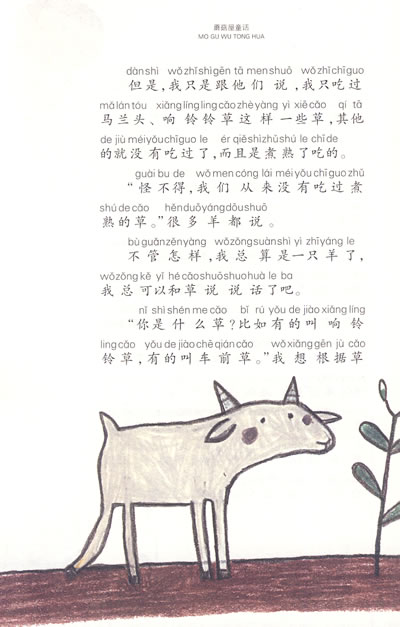 蘑菇屋童话
MO GU WU TONG HUA
dànshì wǒzhǐshìgēn tā menshuō wǒzhǐchīguo
但是,我只是跟他们说,我只吃过
mǎlántóu xiǎnglínglíngcǎozhèyàng yì xiēcǎo qí tā
马兰头、响铃铃草这样一些草,其他
de jiù méiyǒuchīguo le ér qiěshìzhǔshú le chīde
的就没有吃过了,而且是煮熟了吃的。
guài bu de wǒmencóng lái méiyǒuchīguozhǔ
“怪不得,我们从来没有吃过煮
shú de cǎo hěnduōyángdōushuō
熟的草。”很多羊都说。
bùguǎnzěnyàng wǒzǒngsuànshì yì zhīyáng le
不管怎样,我总算是一只羊了,
wǒzǒng kě yǐ hé cǎoshuōshuohuà le ba
我总可以和草说说话了吧。
nǐ shì shén me cǎo bǐ rú yǒu de jiào xiǎng líng
“你是什么草?比如有的叫响铃
líng cǎo yǒu de jiào chē qián cǎo wǒ xiǎng gēn jù cǎo
铃草,有的叫车前草。”我想根据草